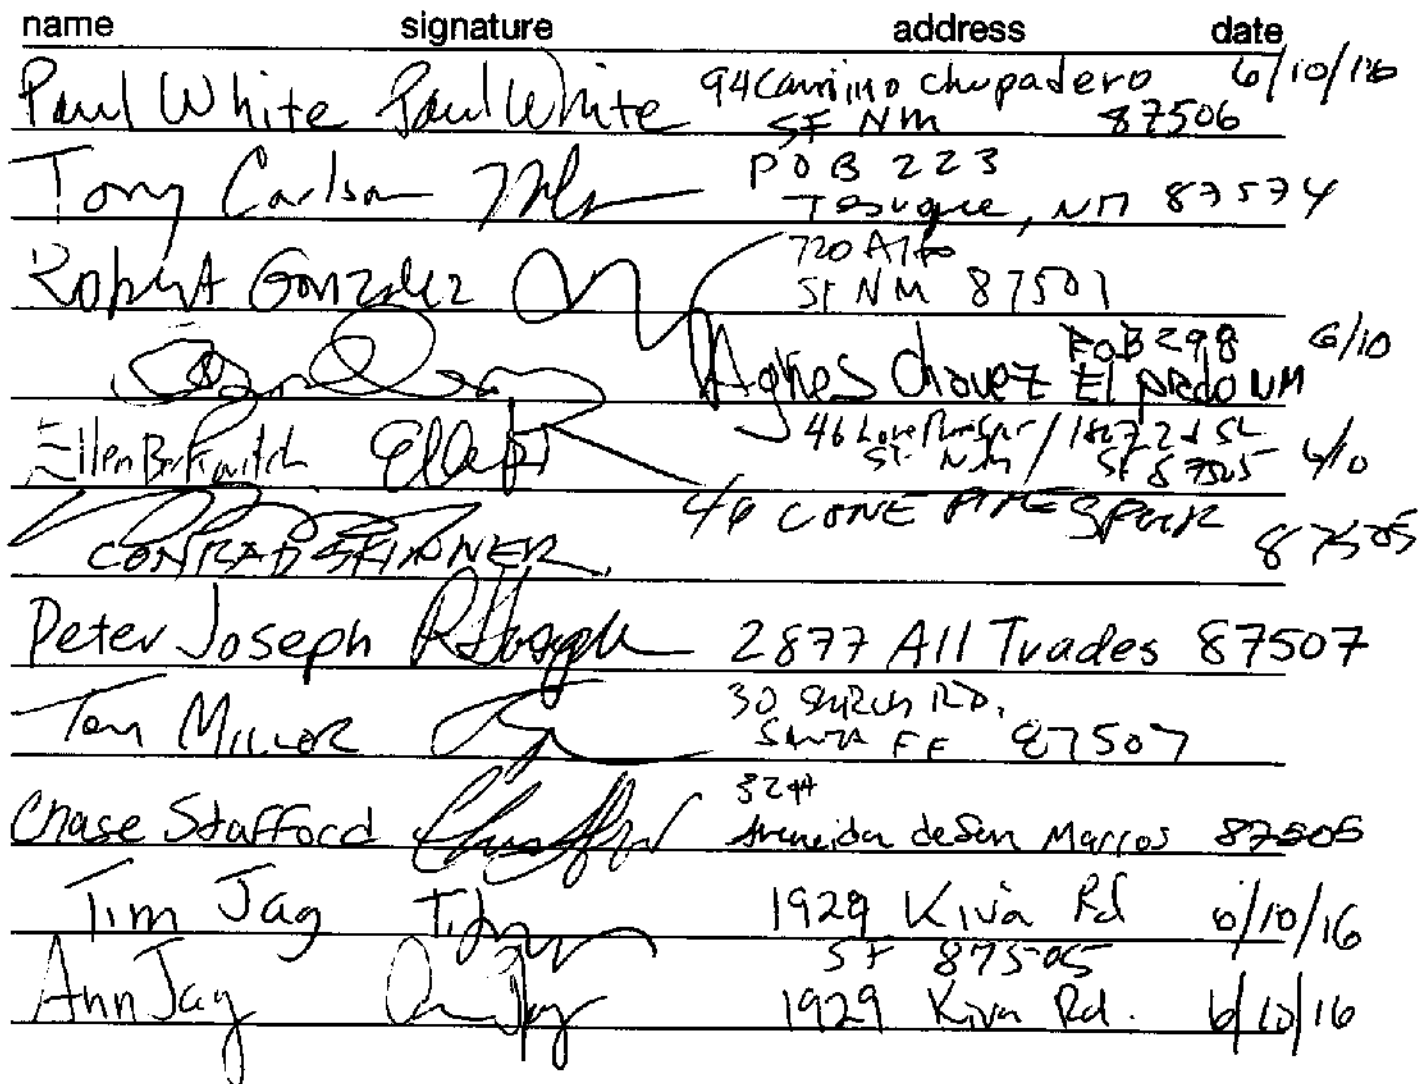 name signature address date
Paul White Paul White 94 Camino Chupadero 6/10/16
SF NM 87506
Tony Carlson POB 223
Tesuque, NM 87574
Robert Gonzalez 720 Alto
SF NM 87501
Agnes Chavez POB 298 6/10
El Prado NM
Ellen Berkovitch 46 Lone Pine Spur / 1807 2d St 6/10
SF NM SF 87505
46 CONE PINE SPUR
CONRAD SKINNER 87505
Peter Joseph 2877 All Trades 87507
Tom Miller 30 RD,
Santa FE 87507
Chase Stafford 32
Avenida de San Marcos 87505
Tim Jag Tim Jag 1929 Kiva Rd 6/10/16
SF 87505
Ann Jag Ann Jag 1929 Kiva Rd. 6/10/16